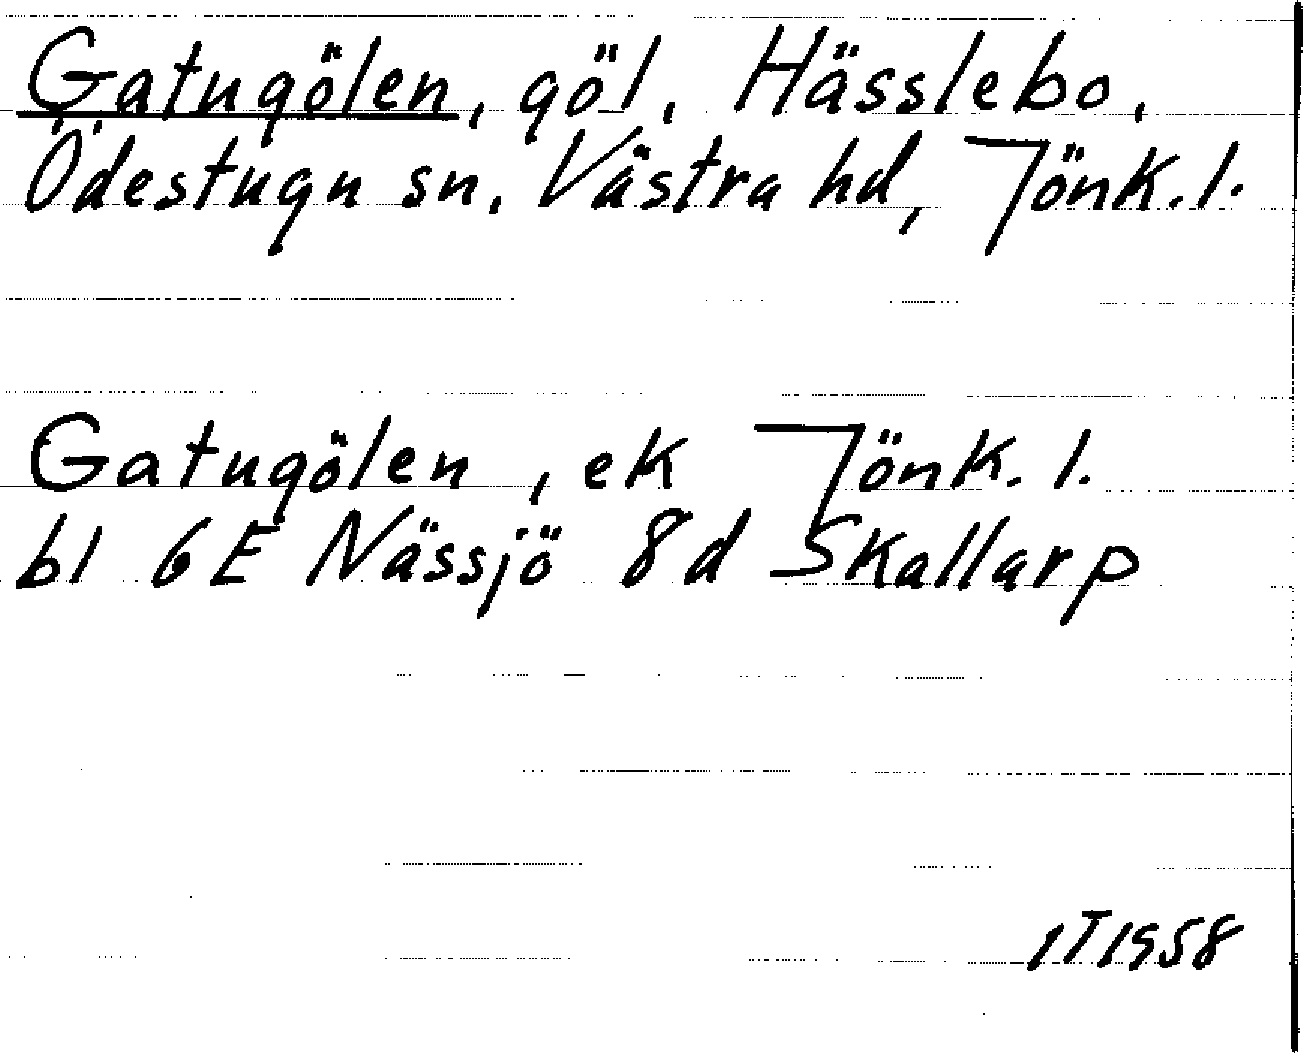 Gatugölen, göl, Hässlebo,
Ödestugu sn. Västra hd, Jönk.l.
Gatugölen, ek Jönk.l.
bl 6E Nässjö 8d Skallarp
1T1958